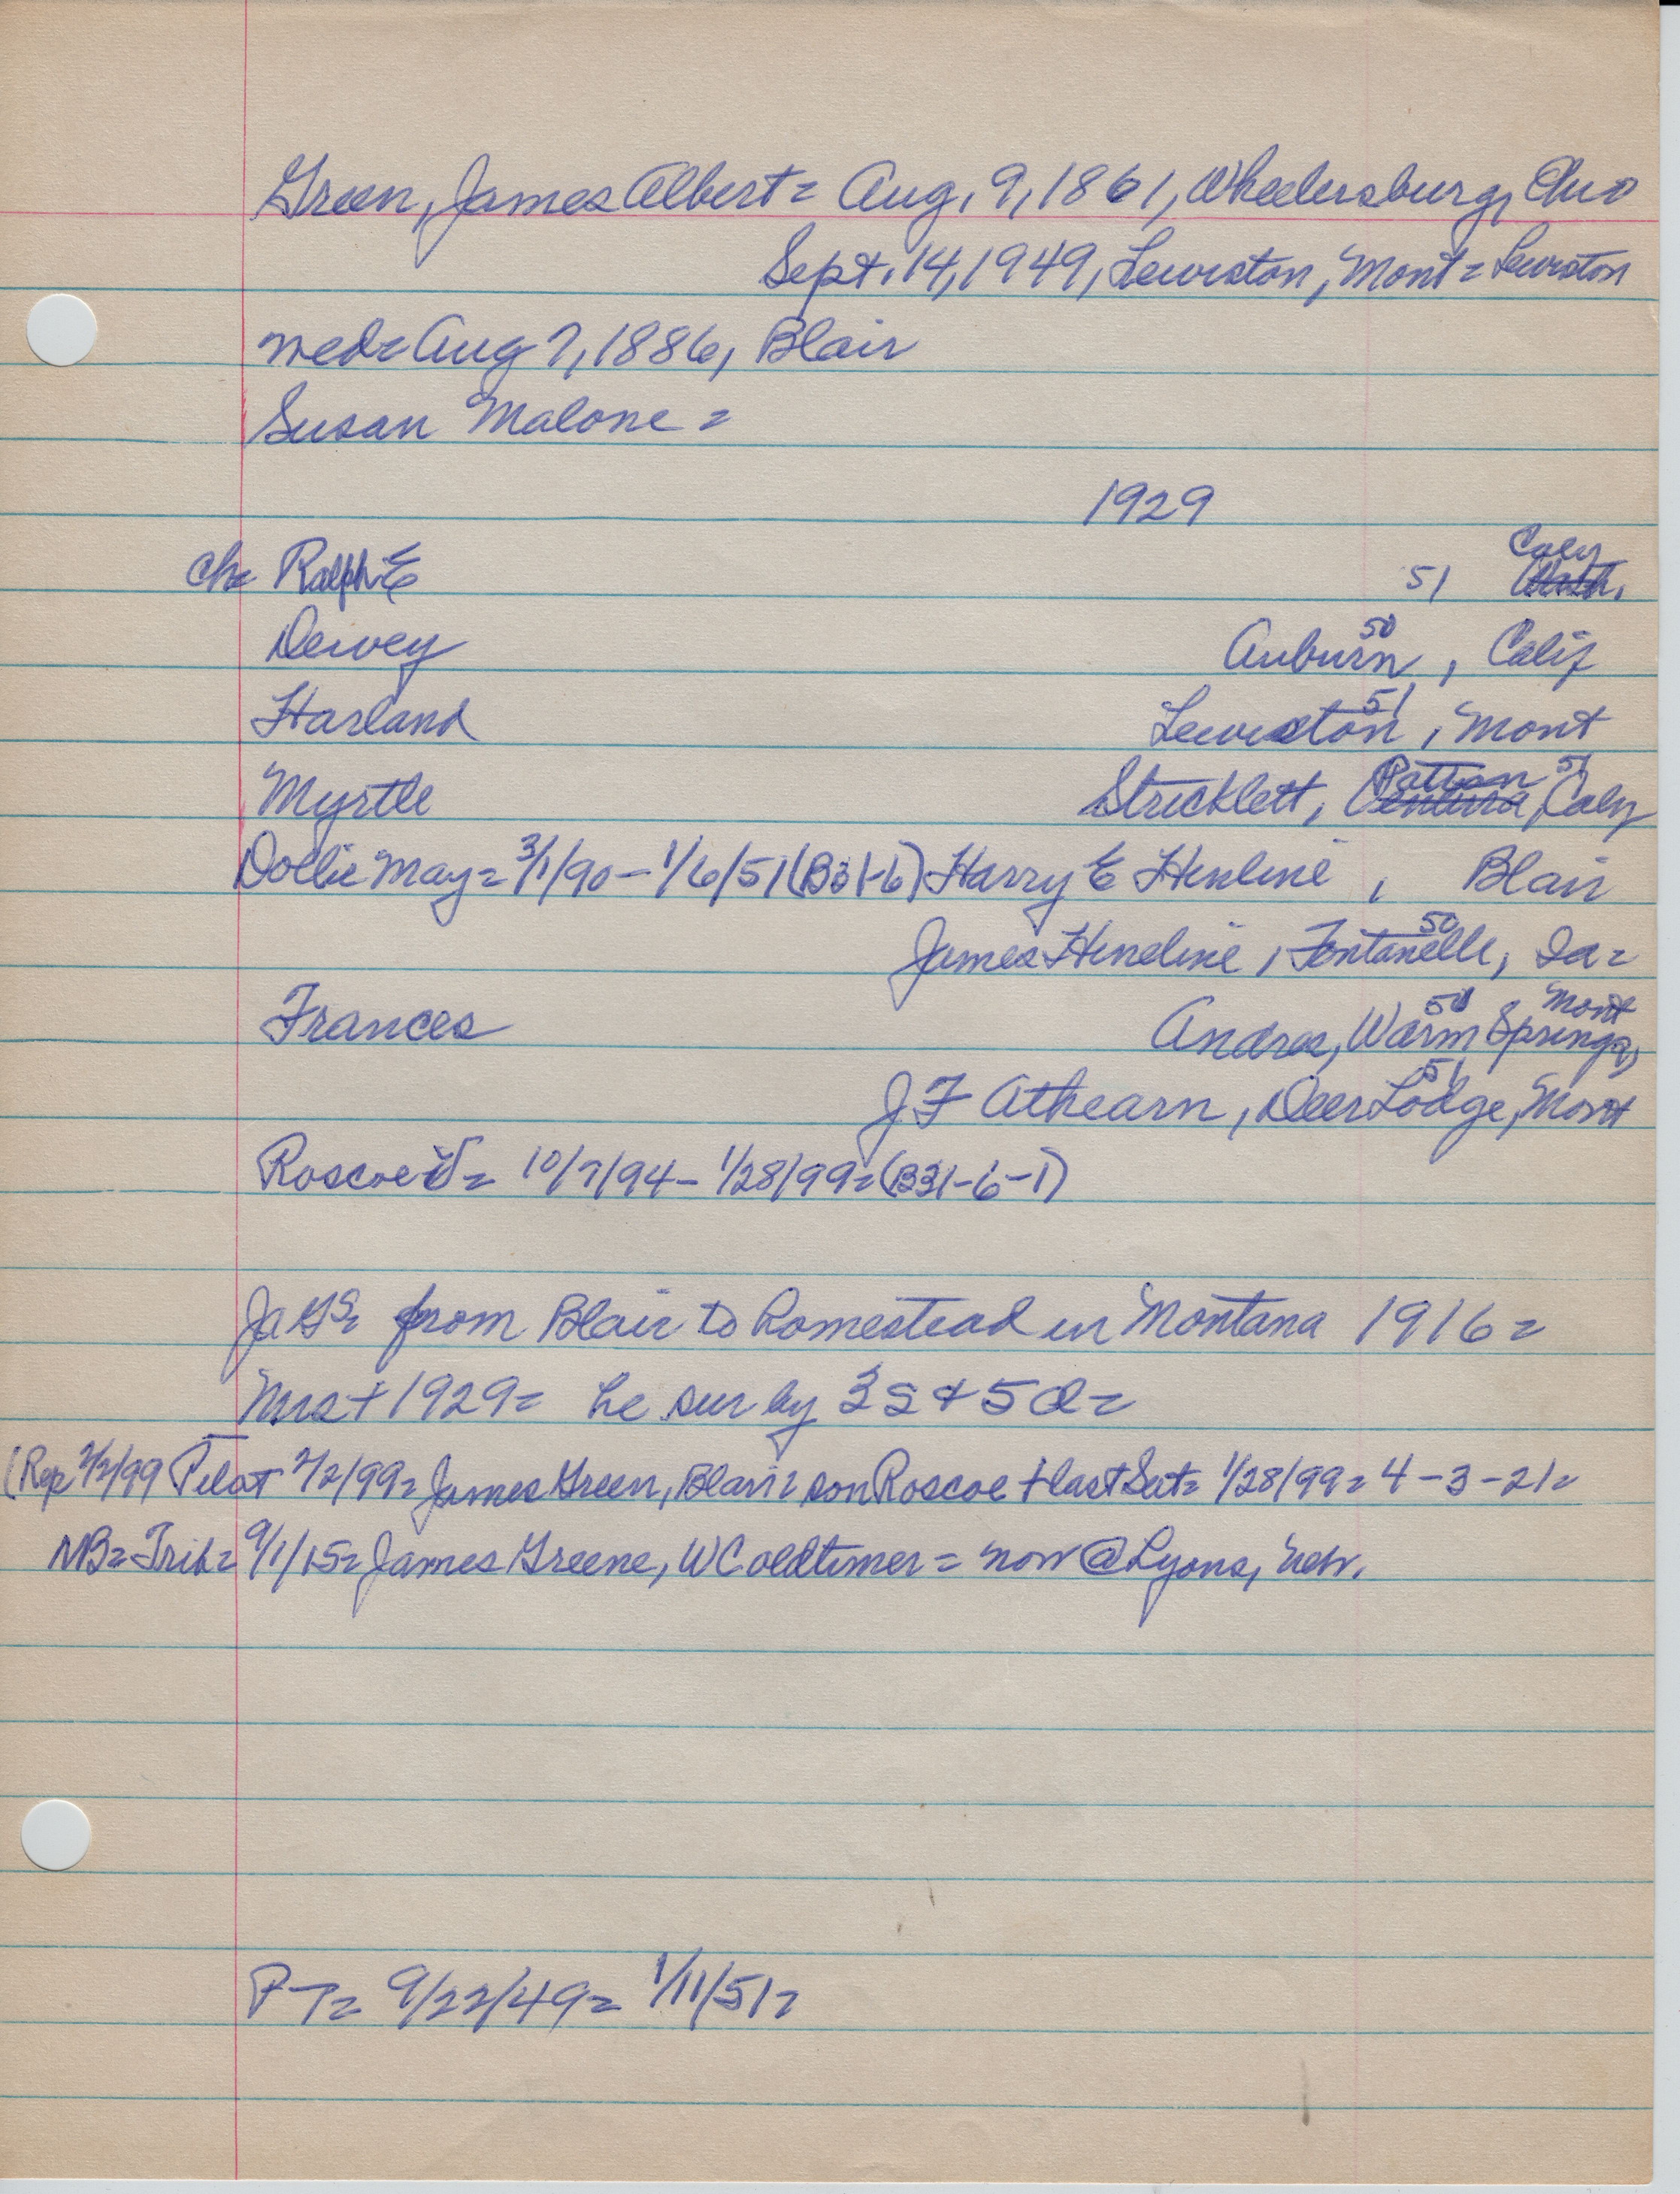 Green, James Albert= Aug. 9, 1861, Wheelersburg, Ohio
Sept. 14, 1949, Lewiston, Mont= Lewiston
wed= Aug 7, 1886, Blair
Susan Malone=
1929
ch= Ralph E 51 Calif
Dewey Auburn 50, Calif
Harland Lewiston 51, Mont
Myrtle Stricklett, Patton 51 Calif
Dollie May= 3/1/90 - 1/6/51 (B31-6) Harry E Henline, Blair
James Heneline, Fontanelle 50, Ia=
Frances Andres, Warm Springs, 50 Mont
J F Athearn, Deer Lodge, 51 Mont
Roscoe = 10/7/94 - 1/28/99= (B31-6-1)
from Blair to homestead in Montana 1916=
Mrs + 1929= he sur by 3 S + 5 d=
(Rep 2/2/99 Pilot 2/2/99= James Green, Blair= son Roscoe + last Sat= 1/28/99= 4-3-21=
NB= Trib= 9/1/15= James Greene, WC oldtimer= now @ Lyons, Neb.
PT= 9/22/49= 1/11/51=